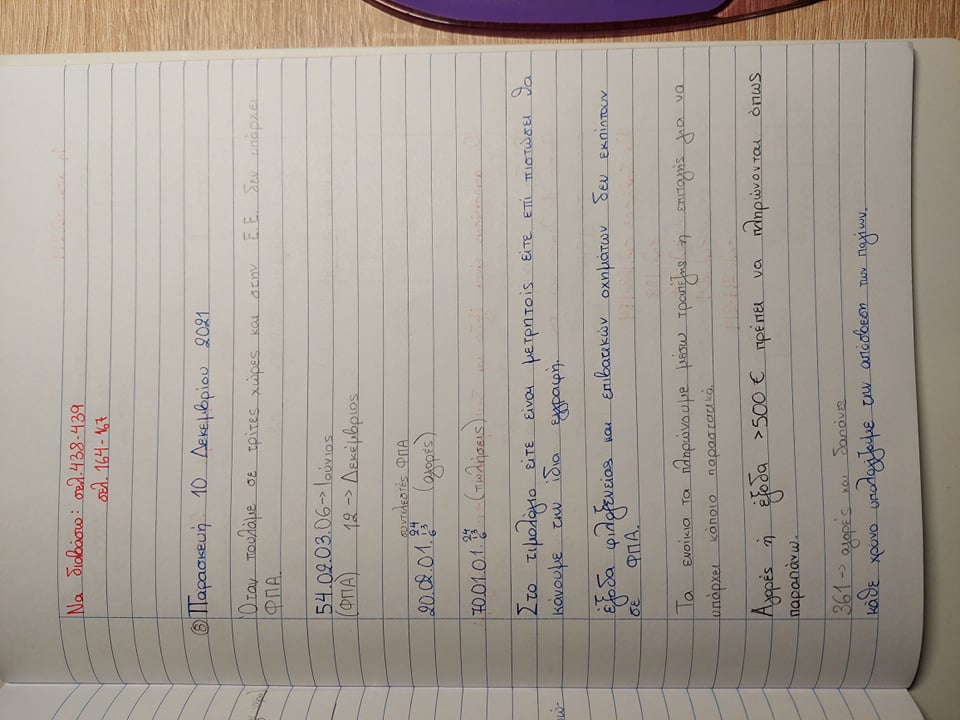 Να διαβάσω: σελ. 438-439
σελ. 164-167
⑧ Παρασκευή 10 Δεκεμβρίου 2021
Όταν πουλάμε σε τρίτες χώρες και στην Ε.Ε. δεν υπάρχει
ΦΠΑ.
54.02.03.06 -> Ιούνιος
(ΦΠΑ) 12 -> Δεκέμβριος
συντελεστές ΦΠΑ
24
20.02.01. 13 (αγορές)
6
24
70.01.01. 13 (πωλήσεις)
6
Στο τιμολόγιο είτε είναι μετρητοίς είτε επί πιστώσει θα
κάνουμε την ίδια εγγραφή.
έξοδα φιλοξενείας και επιβατικών οχημάτων δεν εκπίπτουν
σε ΦΠΑ.
Τα ενοίκια τα πληρώνουμε μέσω τραπέζης ή επιταγής για να
υπάρχει κάποιο παραστατικό.
Αγορές ή έξοδα >500 € πρέπει να πληρώνονται όπως
παραπάνω.
361 -> αγορές και δαπάνες
κάθε χρόνο υπολογίζουμε την απόσβεση των παγίων.